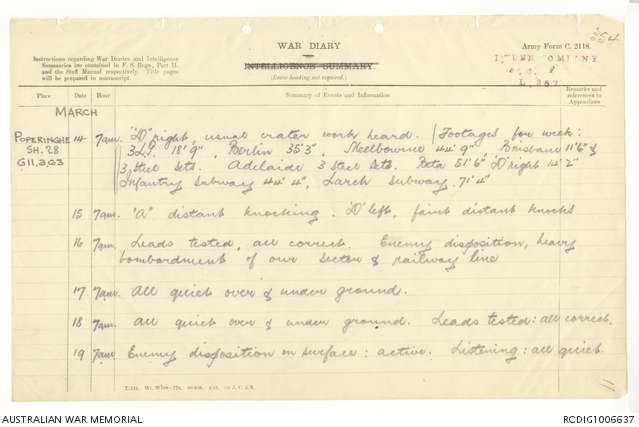 354
WAR DIARY
INTELLIGENCE SUMMARY.
(Erase heading not required.)
Army Form C. 2118.
Instructions regarding War Diaries and Intelligence
Summaries are contained in F. S. Regs., Part II.
and the Staff Manual respectively. Title pages
will be prepared in manuscript.
Place Date Hour Summary of Events and Information Remarks and references to Appendices
MARCH
POPERINGHE 14 7am. "D" right, usual crater work heard. Footages for week:
SH. 28 3 L.T. 18'9", Berlin 35'3", Melbourne 44'9", Brisbane 11'6" &
G11,a,9,3 3 steel sets. Adelaide 3 steel sets. Beta 51'6" "D" right 14'2"
Infantry Subway 44'4", Larch Subway 71'4"
15 7am. "A" distant knocking. "D" left, faint distant knocks
16 7am. Leads tested, all correct. Enemy disposition, heavy
bombardment of our sector & railway line
17 7am. All quiet over & under ground.
18 7am. All quiet over & under ground. Leads tested: all correct.
19 7am. Enemy disposition on surface: active. Listening: all quiet.
11
AUSTRALIAN WAR MEMORIAL
RCDIG1006637